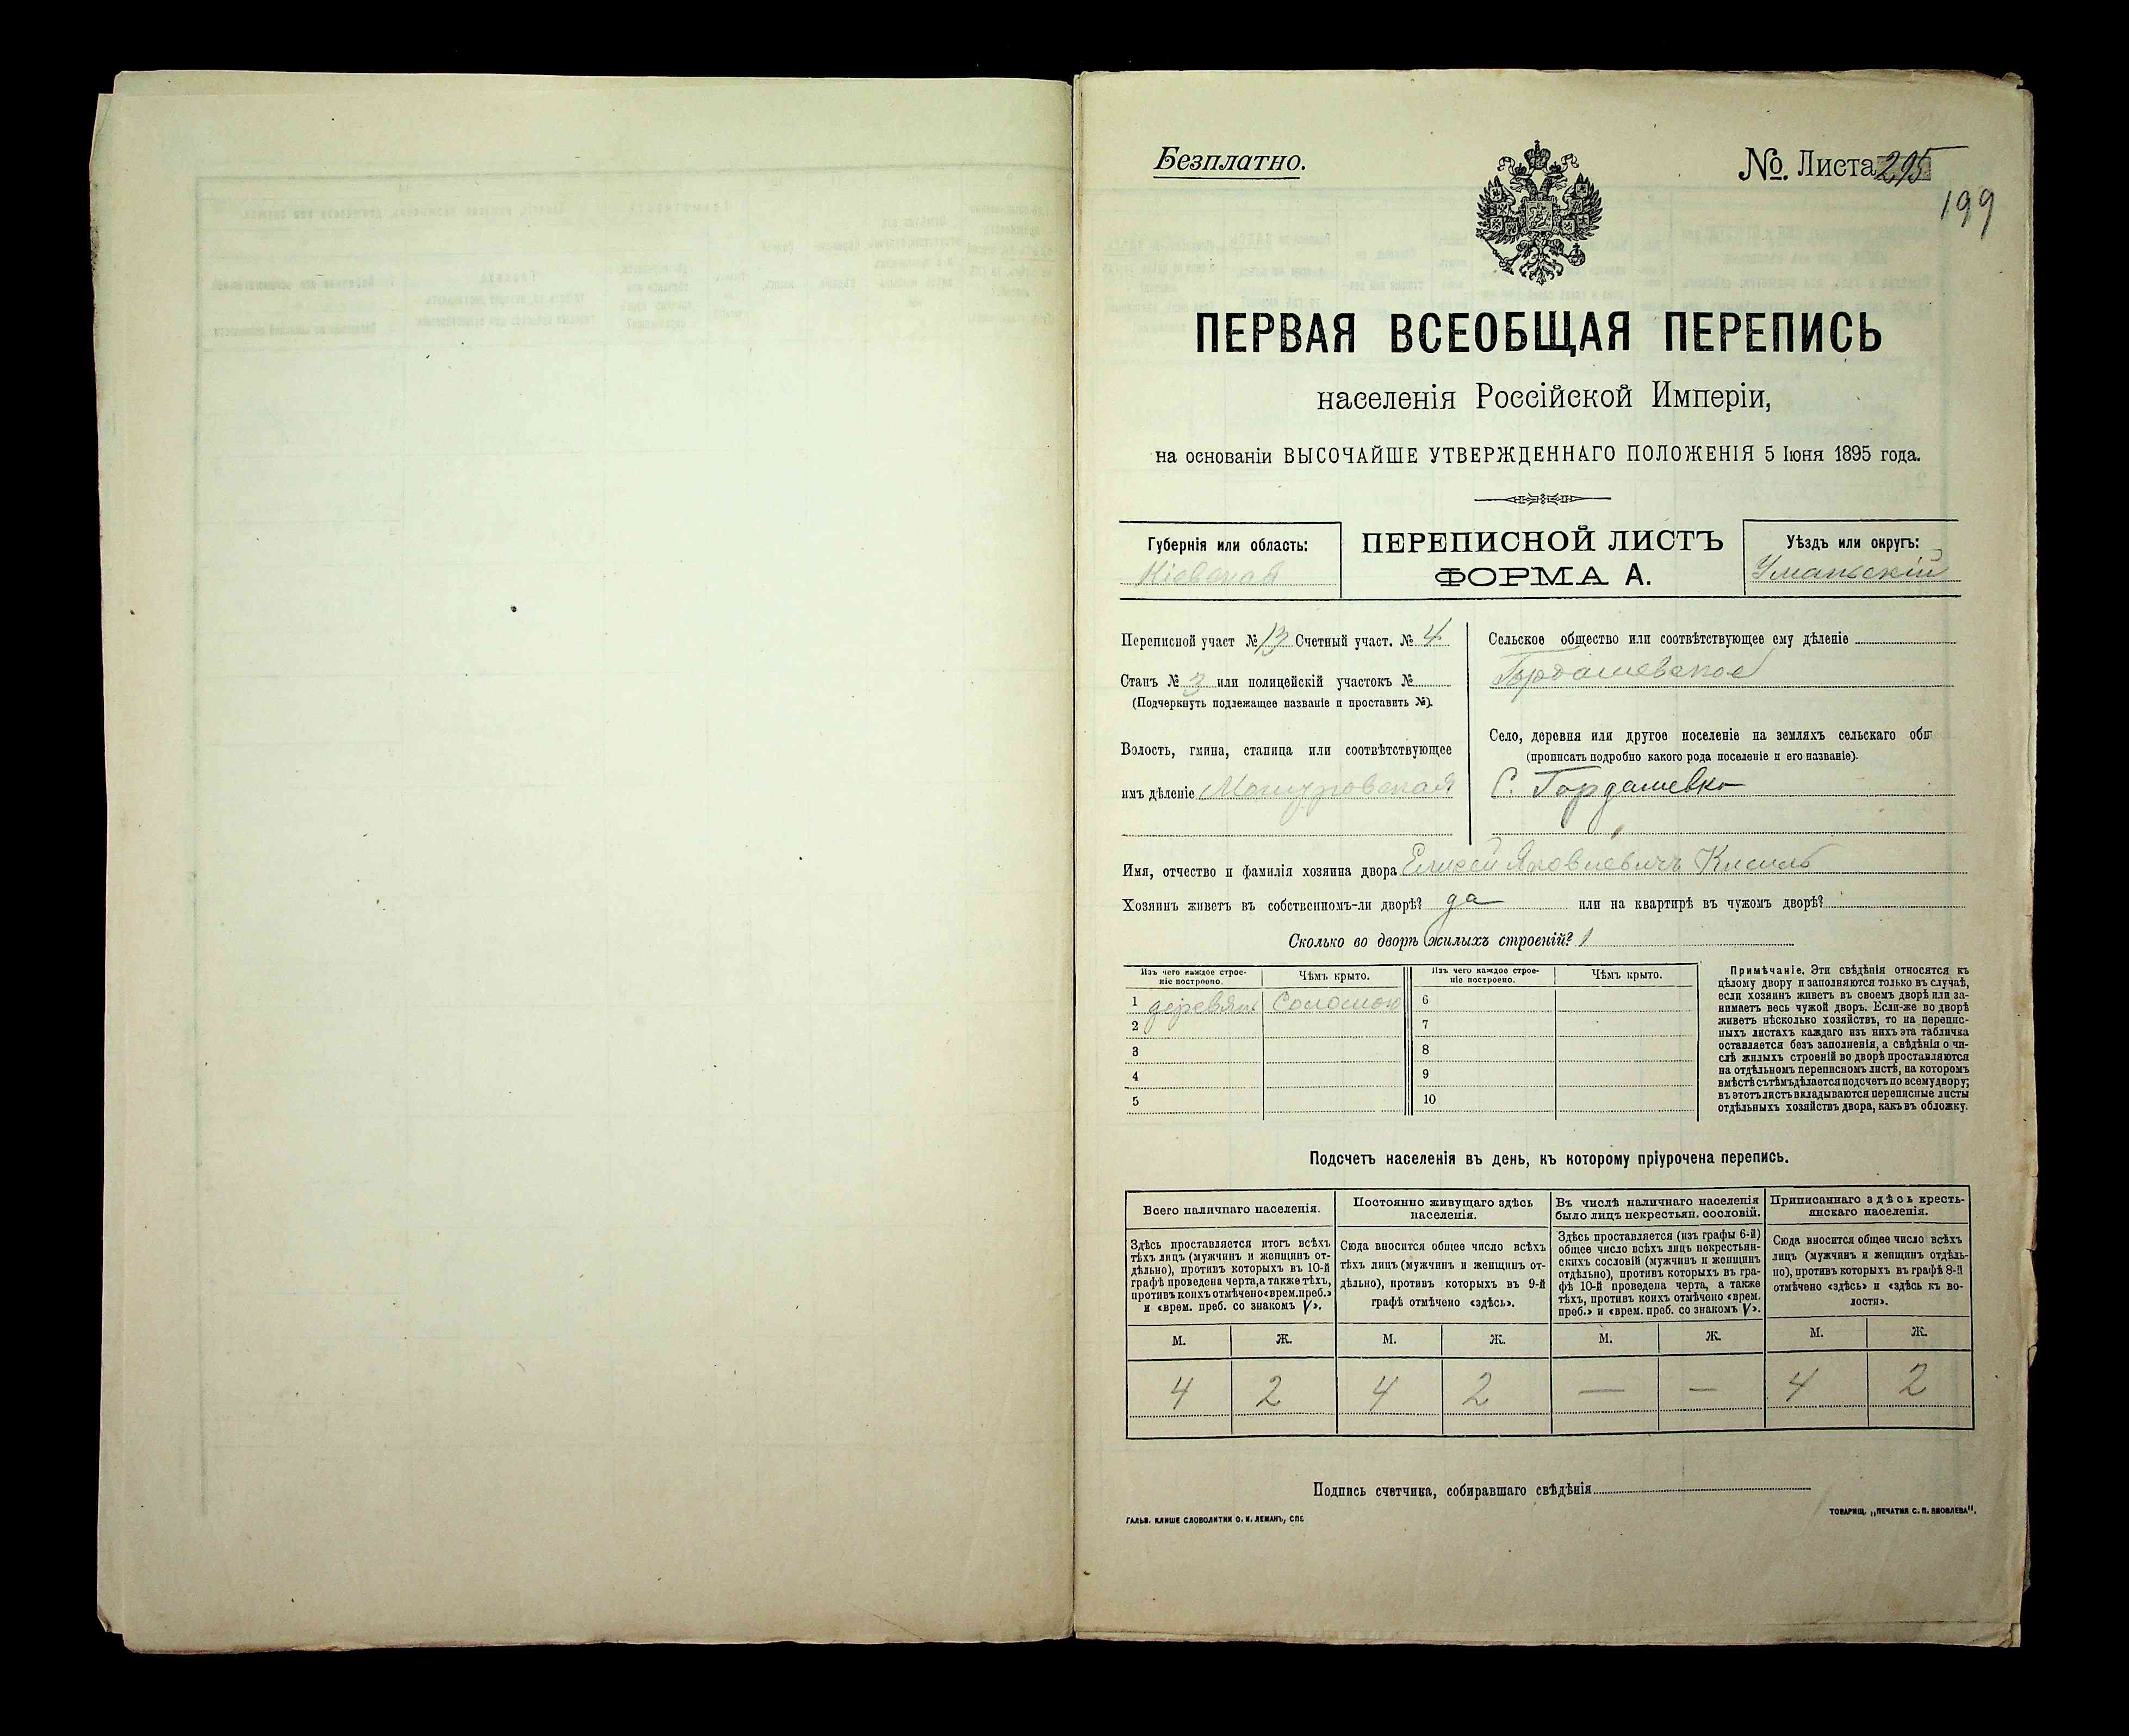 Безплатно.
№. Листа 295
199
ПЕРВАЯ ВСЕОБЩАЯ ПЕРЕПИСЬ
населенія Россійской Имперіи,
на основаніи ВЫСОЧАЙШЕ УТВЕРЖДЕННАГО ПОЛОЖЕНІЯ 5 Іюня 1895 года.
Губернія или область:
Кіевская
ПЕРЕПИСНОЙ ЛИСТЪ
ФОРМА А.
Уѣздъ или округъ:
Уманьскій
Переписной участ № 13 Счетный участ. № 4
Станъ № 3 или полицейскій участокъ №
(Подчеркнуть подлежащее названіе и проставить №).
Волость, гмина, станица или соотвѣтствующее
имъ дѣленіе
Сельское общество или соотвѣтствующее ему дѣленіе
Гордашевское
Село, деревня или другое поселеніе на земляхъ сельскаго общ
(прописать подробно какого рода поселеніе и его названіе).
С. Гордашевка
Имя, отчество и фамилія хозяина двора Елисей Яковлевичъ Кисиль
Хозяинъ живетъ въ собственномъ-ли дворѣ? да или на квартирѣ въ чужомъ дворѣ?
Сколько во дворѣ жилыхъ строеній? 1
Изъ чего каждое строе-
ніе построено.
Чѣмъ крыто.
Изъ чего каждое строе-
ніе построено.
Чѣмъ крыто.
1 деревян Соломою 6
2 7
3 8
4 9
5 10
Примѣчаніе. Эти свѣдѣнія относятся къ
цѣлому двору и заполняются только въ случаѣ,
если хозяинъ живетъ въ своемъ дворѣ или за-
нимаетъ весь чужой дворъ. Если-же во дворѣ
живетъ нѣсколько хозяйствъ, то на перепис-
ныхъ листахъ каждаго изъ нихъ эта табличка
оставляется безъ заполненія, а свѣдѣнія о чи-
слѣ жилыхъ строеній во дворѣ проставляются
на отдѣльномъ переписномъ листѣ, на которомъ
вмѣстѣ сътѣмъ дѣлается подсчетъ по всему двору;
въ этотъ листъ вкладываются переписные листы
отдѣльныхъ хозяйствъ двора, какъ въ обложку.
Подсчетъ населенія въ день, къ которому пріурочена перепись.
Всего наличнаго населенія.
Здѣсь проставляется итогъ всѣхъ
тѣхъ лицъ (мужчинъ и женщинъ от-
дѣльно), противъ которыхъ въ 10-й
графѣ проведена черта, а также тѣхъ,
противъ коихъ отмѣчено «врем. преб.»
и «врем. преб. со знакомъ V».
Постоянно живущаго здѣсь
населенія.
Сюда вносится общее число всѣхъ
тѣхъ лицъ (мужчинъ и женщинъ от-
дѣльно), противъ которыхъ въ 9-й
графѣ отмѣчено «здѣсь».
Въ числѣ наличнаго населенія
было лицъ некрестьян. сословій.
Здѣсь проставляется (изъ графы 6-й)
общее число всѣхъ лицъ некрестьян-
скихъ сословій (мужчинъ и женщинъ
отдѣльно), противъ которыхъ въ гра-
фѣ 10-й проведена черта, а также
тѣхъ, противъ коихъ отмѣчено «врем.
преб.» и «врем. преб. со знакомъ V».
Приписаннаго здѣсь кресть-
янскаго населенія.
Сюда вносится общее число всѣхъ
лицъ (мужчинъ и женщинъ отдѣль-
но), противъ которыхъ въ графѣ 8-й
отмѣчено «здѣсь» и «здѣсь къ во-
лости».
М. Ж. М. Ж. М. Ж. М. Ж.
4 2 4 2 — — 4 2
Подпись счетчика, собиравшаго свѣдѣнія
ГАЛЬВ. КЛИШЕ СЛОВОЛИТНИ О. И. ЛЕМАНЪ, СПБ.
ТОВАРИЩ. „ПЕЧАТНЯ С. П. ЯКОВЛЕВА",